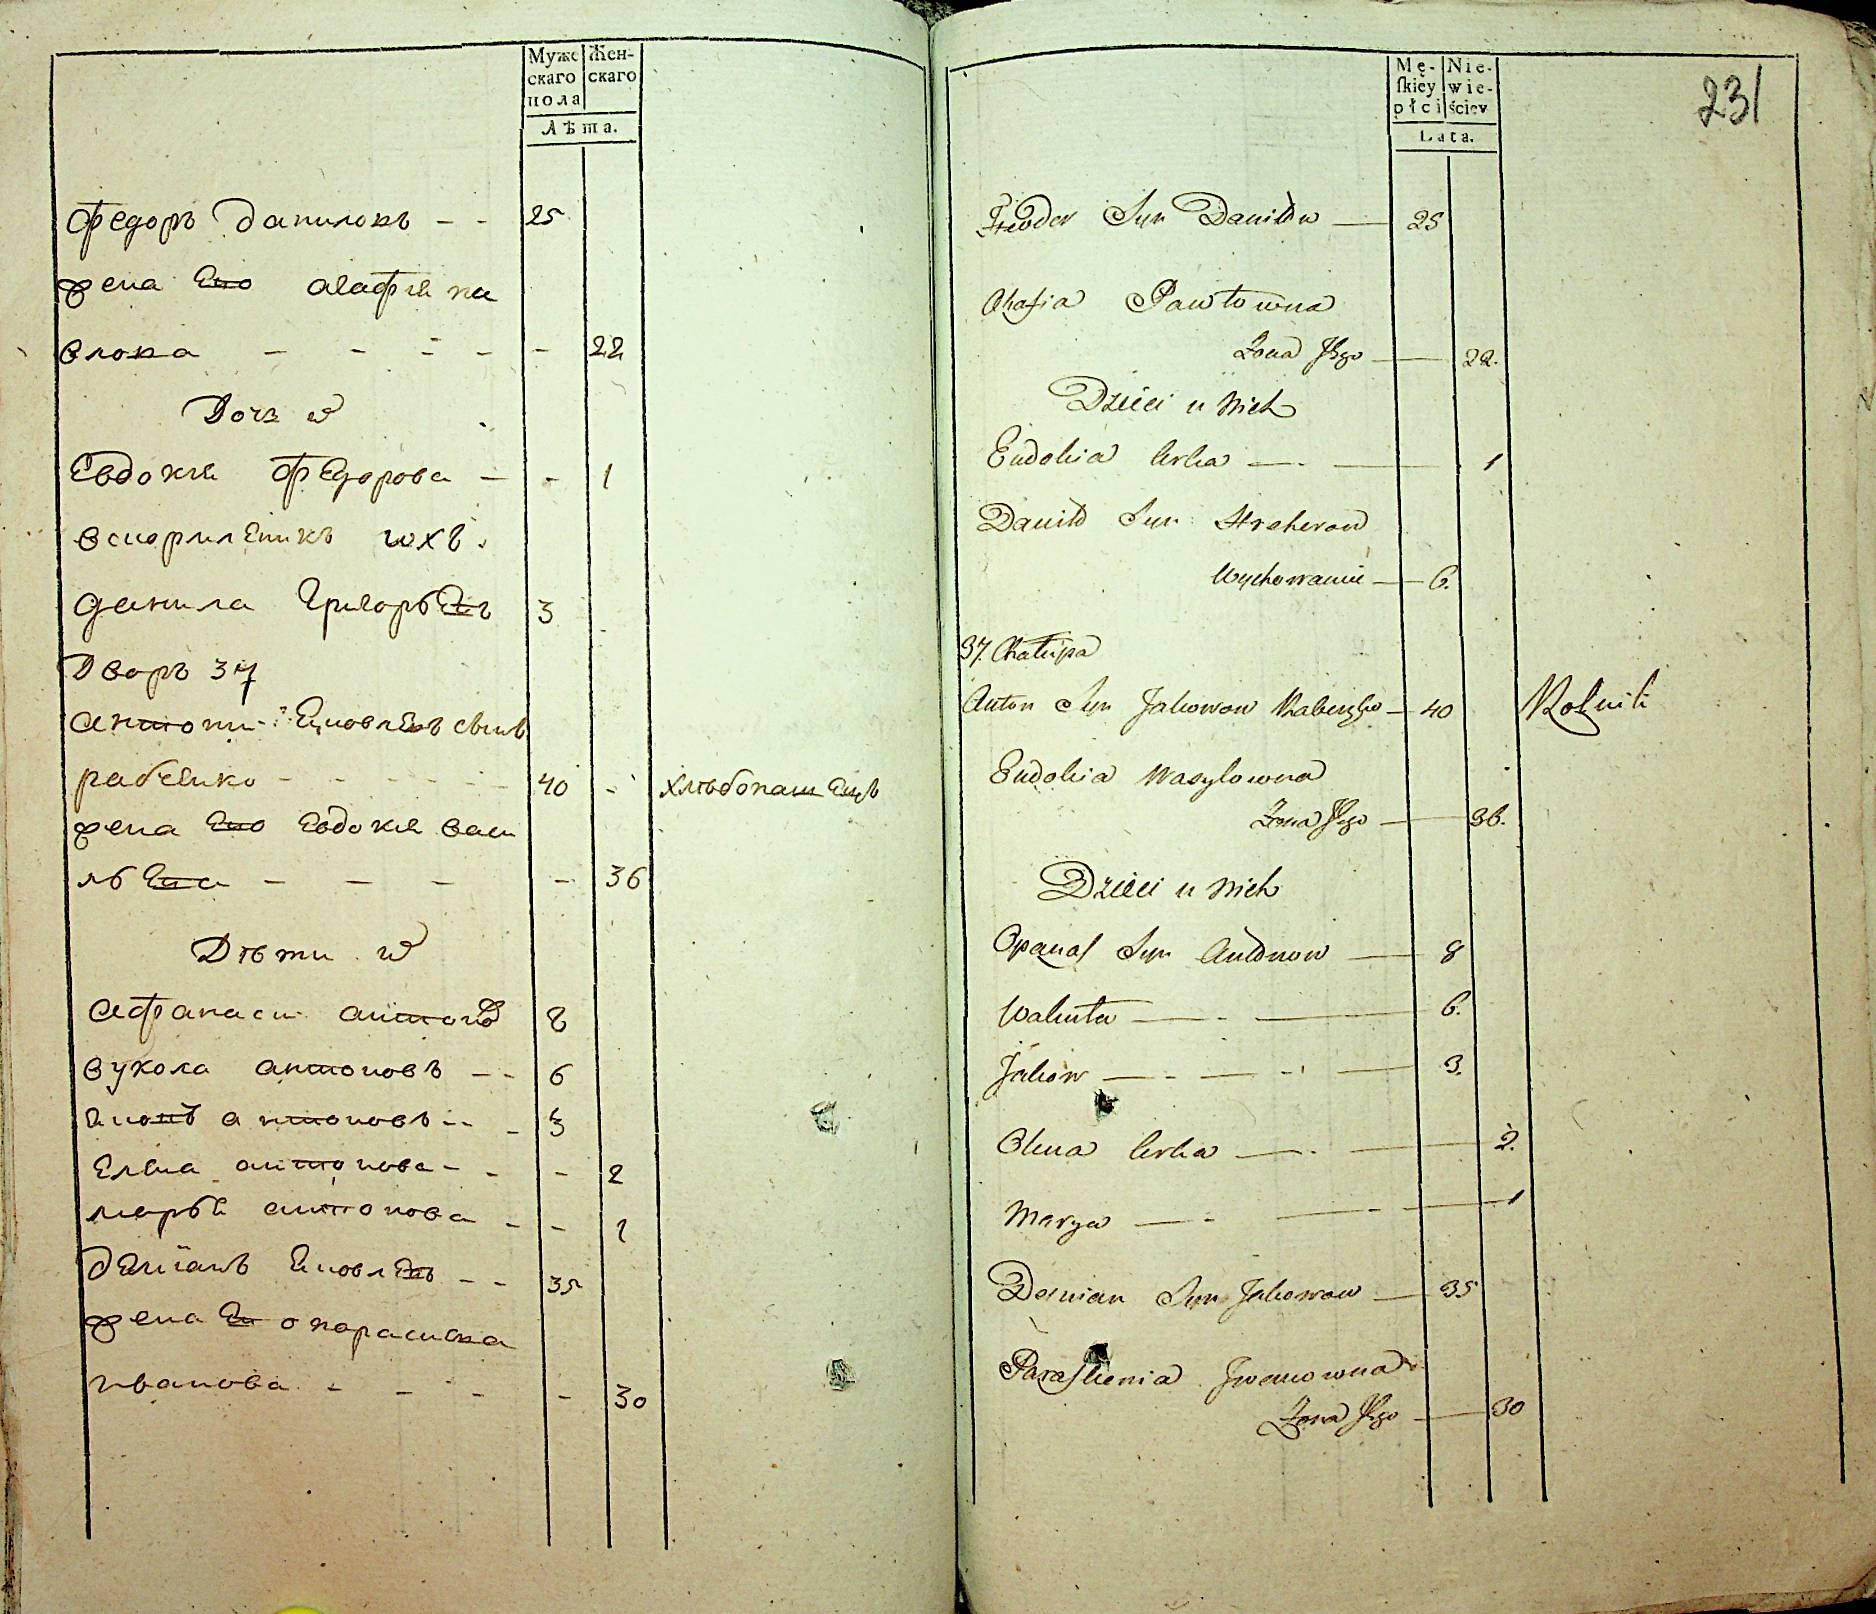 Муже
скаго
пола
Жен-
скаго
Лѣта.
Федоръ Даниловъ - - 25
жена Его агафия па
влова - - - - - 22
Дочь ѿ
Евдокия Федорова - - 1
вскормленикъ ихъ
данила Григорьевъ 3
Дворъ 37
антонъ Яковлевъ сынъ
рабченко - - - 40 - хлѣбопашецъ
жена Его Евдокия васи
льева - - - - 36
Дѣти ѿ
афанаси антоновъ 8
вукола антоновъ - - 6
Яковъ антоновъ - - - 3
Елена антонова - - - 2
марья антонова - - 1
демианъ Яковлевъ - - 35
жена Его парасковia
иванова - - - - 30
Mę-
ſkiey
płci
Nie-
wie-
ściey
Lata.
231
Fiedor Syn Daniłow — 25
Ahafia Pawłowna
Żona Jego — 22.
Dzieci u Nich
Eudokia Corka — 1
Daniło Syn Hreherow
Wychowanie — 6.
37. Chałupa
Anton Syn Jakowow Rabczenko — 40 Rolnik
Eudokia Wasylowna
Żona Jego — 36.
Dzieci u Nich
Opanas Syn Antonow — 8
Wakuła — 6.
Jakow — 3.
Olena Corka — 2.
Marya — 1
Demian Syn Jakowow — 35
Paraskewia Jwanowna
Żona Jego — 30